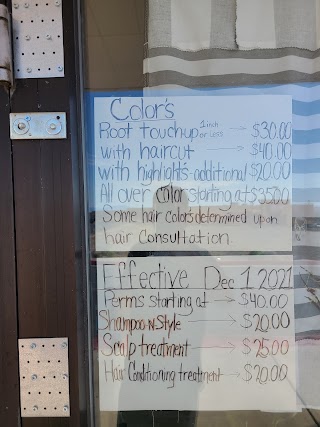 Color's
Root touchup 1 inch or less → $30.00
with haircut → $40.00
with highlights-additional $20.00
All over color starting at $35.00
Some hair colors determined upon
hair consultation.
Effective Dec 1 2021
Perms starting at → $40.00
Shampoo N Style → $20.00
Scalp treatment → $25.00
Hair Conditioning treatment → $20.00